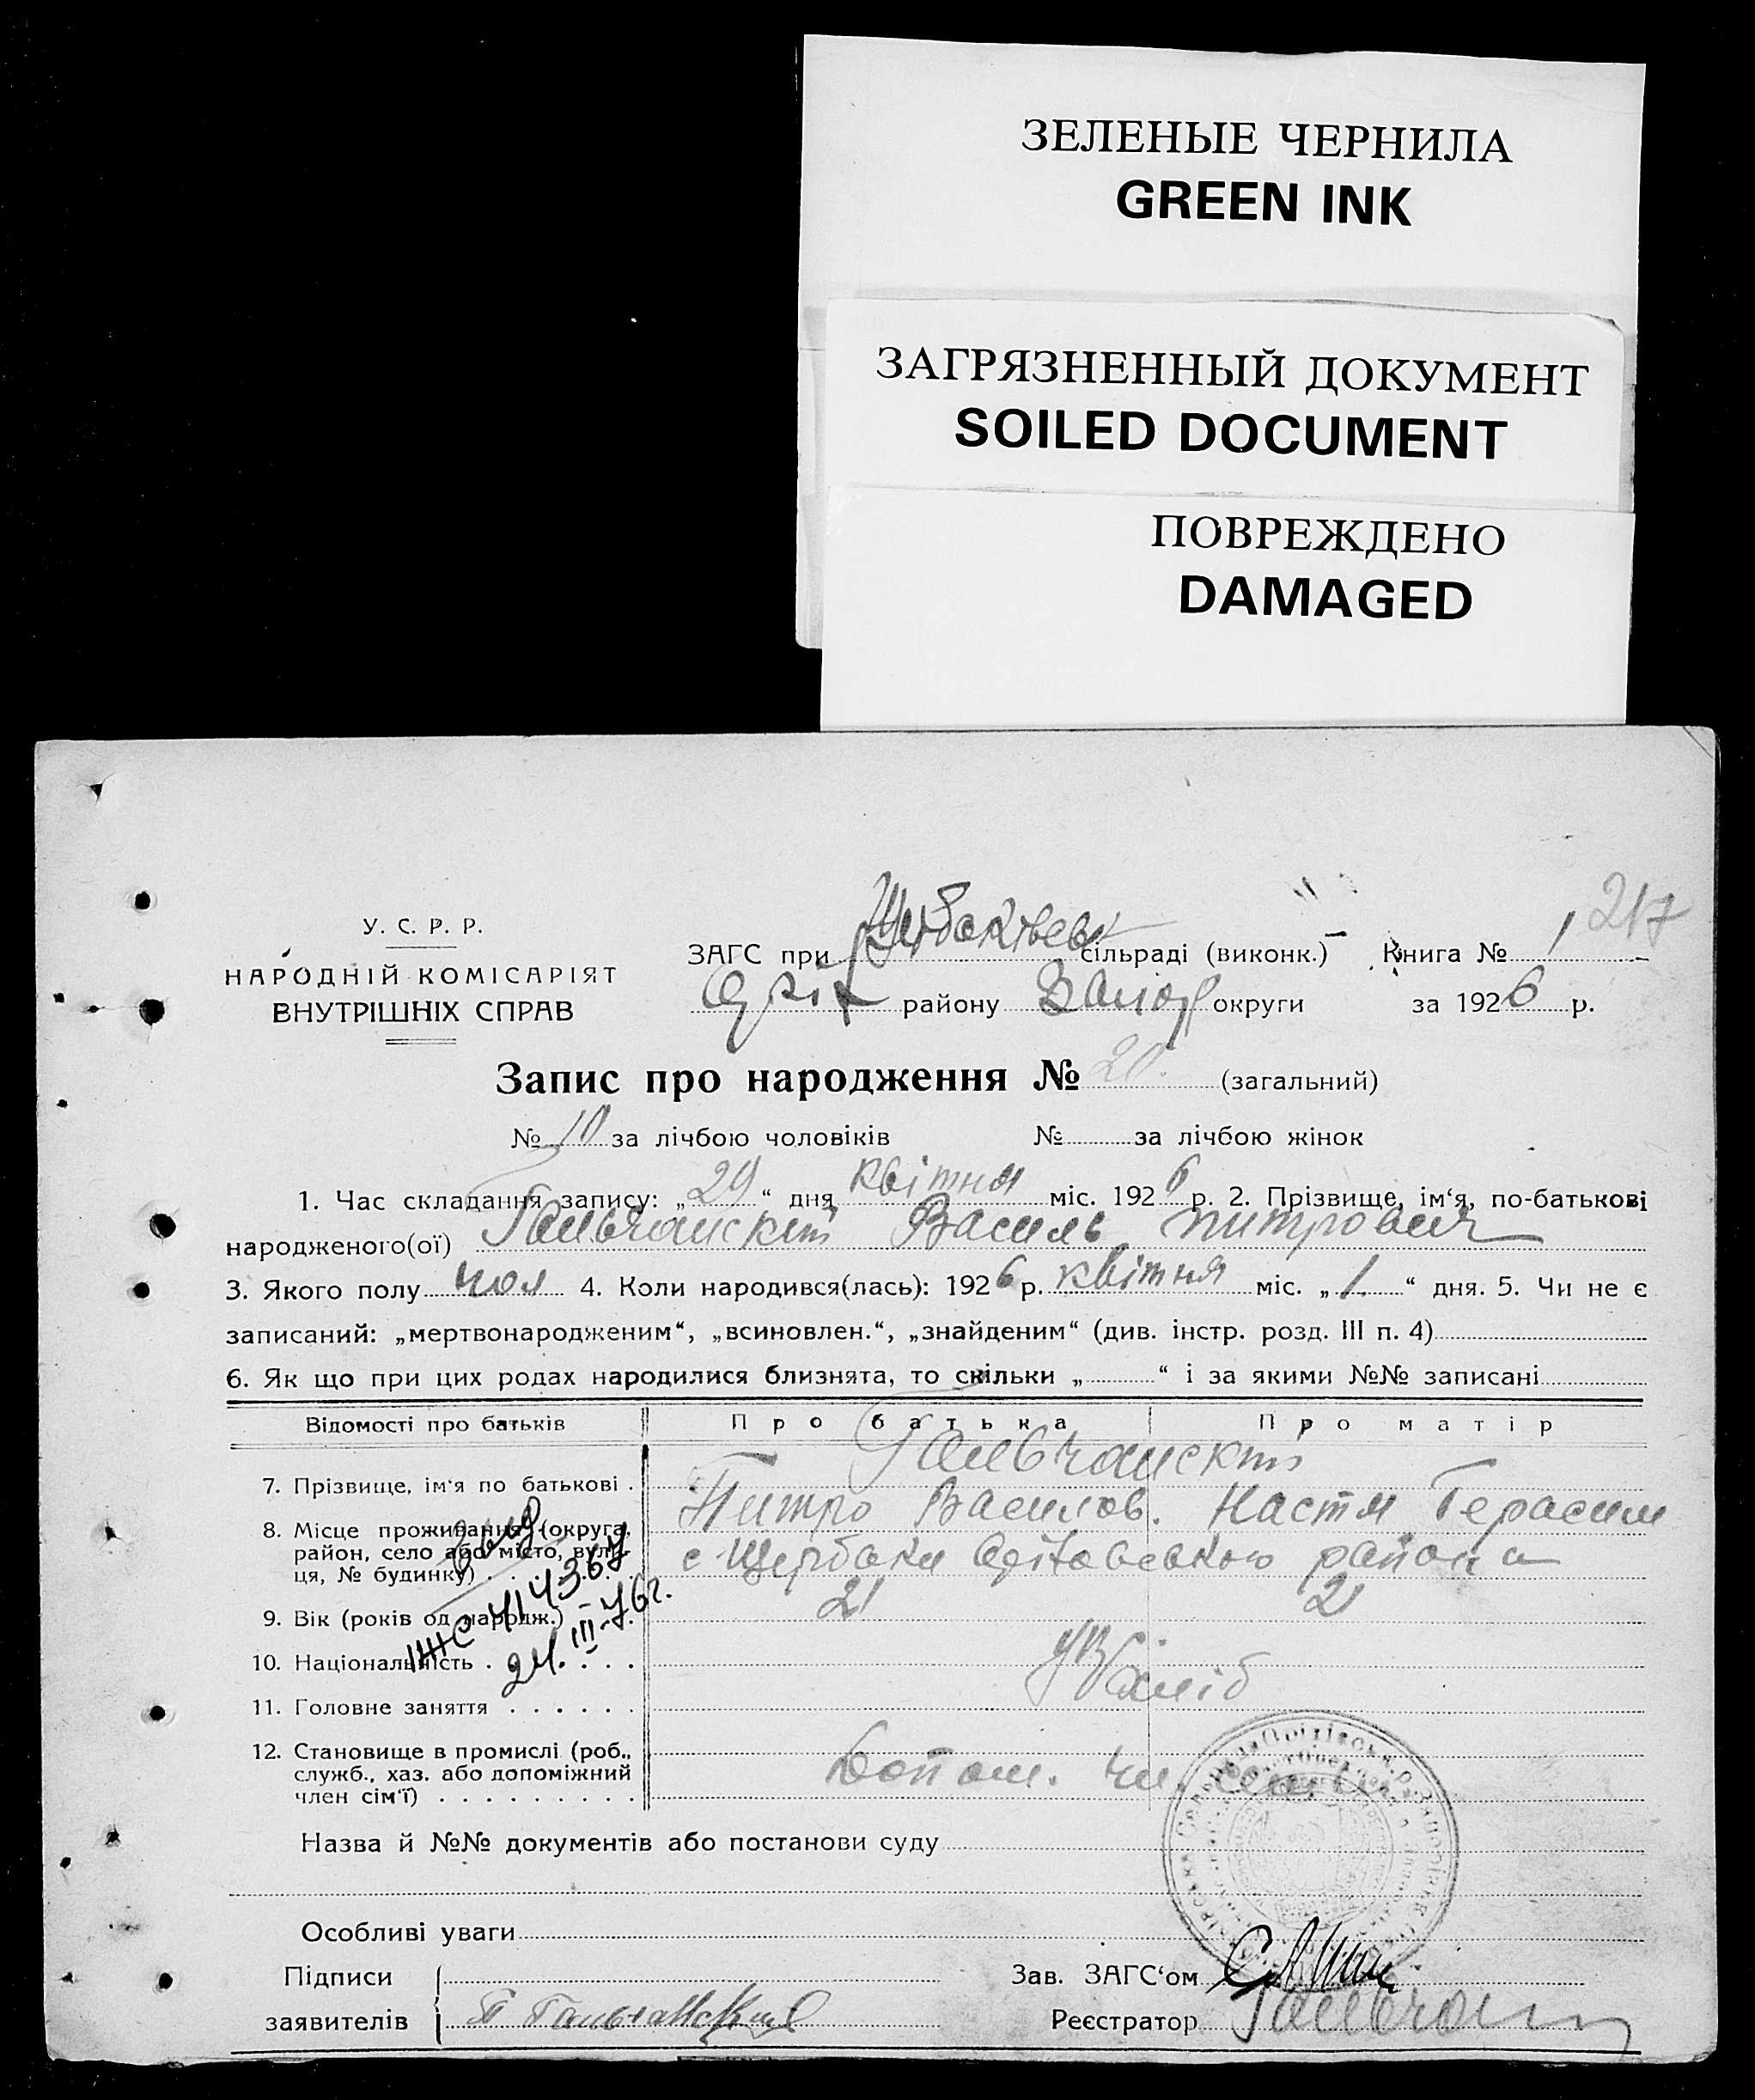 ЗЕЛЕНЫЕ ЧЕРНИЛА
GREEN INK
ЗАГРЯЗНЕННЫЙ ДОКУМЕНТ
SOILED DOCUMENT
ПОВРЕЖДЕНО
DAMAGED
217
У. С. Р. Р.
НАРОДНІЙ КОМІСАРІЯТ
ВНУТРІШНІХ СПРАВ
ЗАГС при сільраді (виконк.) Книга № 1
району Запор округи за 1926 р.
Запис про народження № 20. (загальний)
№ 10 за лічбою чоловіків № за лічбою жінок
1. Час складання запису: „29“ дня квітня міс. 1926 р. 2. Прізвище, ім‘я, по-батькові
народженого(ої) Василь питрович
3. Якого полу чол 4. Коли народився(лась): 1926 р. квітня міс. „1.“ дня. 5. Чи не є
записаний: „мертвонародженим“, „всиновлен.“, „знайденим“ (див. інстр. розд. III п. 4)
6. Як що при цих родах народилися близнята, то скільки „ “ і за якими №№ записані
Відомості про батьків Про батька Про матір
7. Прізвище, ім‘я по батькові . Питро Василов. Настя Герасим
8. Місце проживання (округа, район, село або місто, вулиця, № будинку) с Щербаки району
9. Вік (років од народж.) 21 21
10. Національність . . . . укр
11. Головне заняття . . . . . . хліб
12. Становище в промислі (роб., служб., хаз. або допоміжний член сім‘ї) . . . . . . . . . Допом. чл.
ІЖС 414364
24. III-76г.
Назва й №№ документів або постанови суду
Особливі уваги
Підписи Зав. ЗАГС‘ом
заявителів Реєстратор